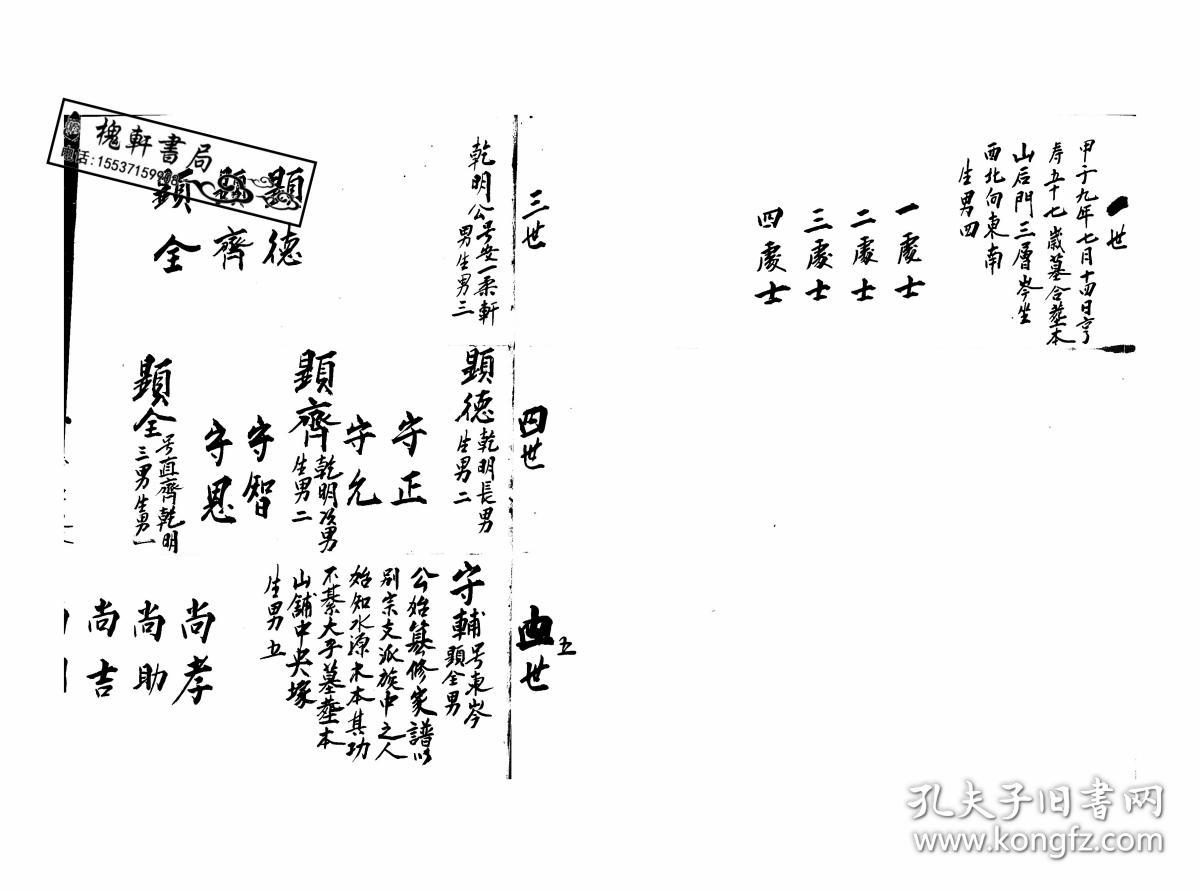 一世
甲子九年七月十四日亨
寿五十七歲墓合塟本
山后門三層岑坐
西北向東南
生男四
一處士
二處士
三處士
四處士
三世
乾明公号安一柔軒
男生男三
顯德
顯齊
顯全
四世
顯德乾明長男
生男二
守正
守允
顯齊乾明次男
生男二
守智
守恩
顯全号直齊乾明
三男生男一
五
世
守輔号東岑
顯全男
公始篡修家譜以
别宗支派族中之人
始知水源木本其功
不綦大乎墓塟本
山舖中央塚
生男五
尚孝
尚助
尚吉
槐軒書局
电话:155371599
孔夫子旧书网
www.kongfz.com